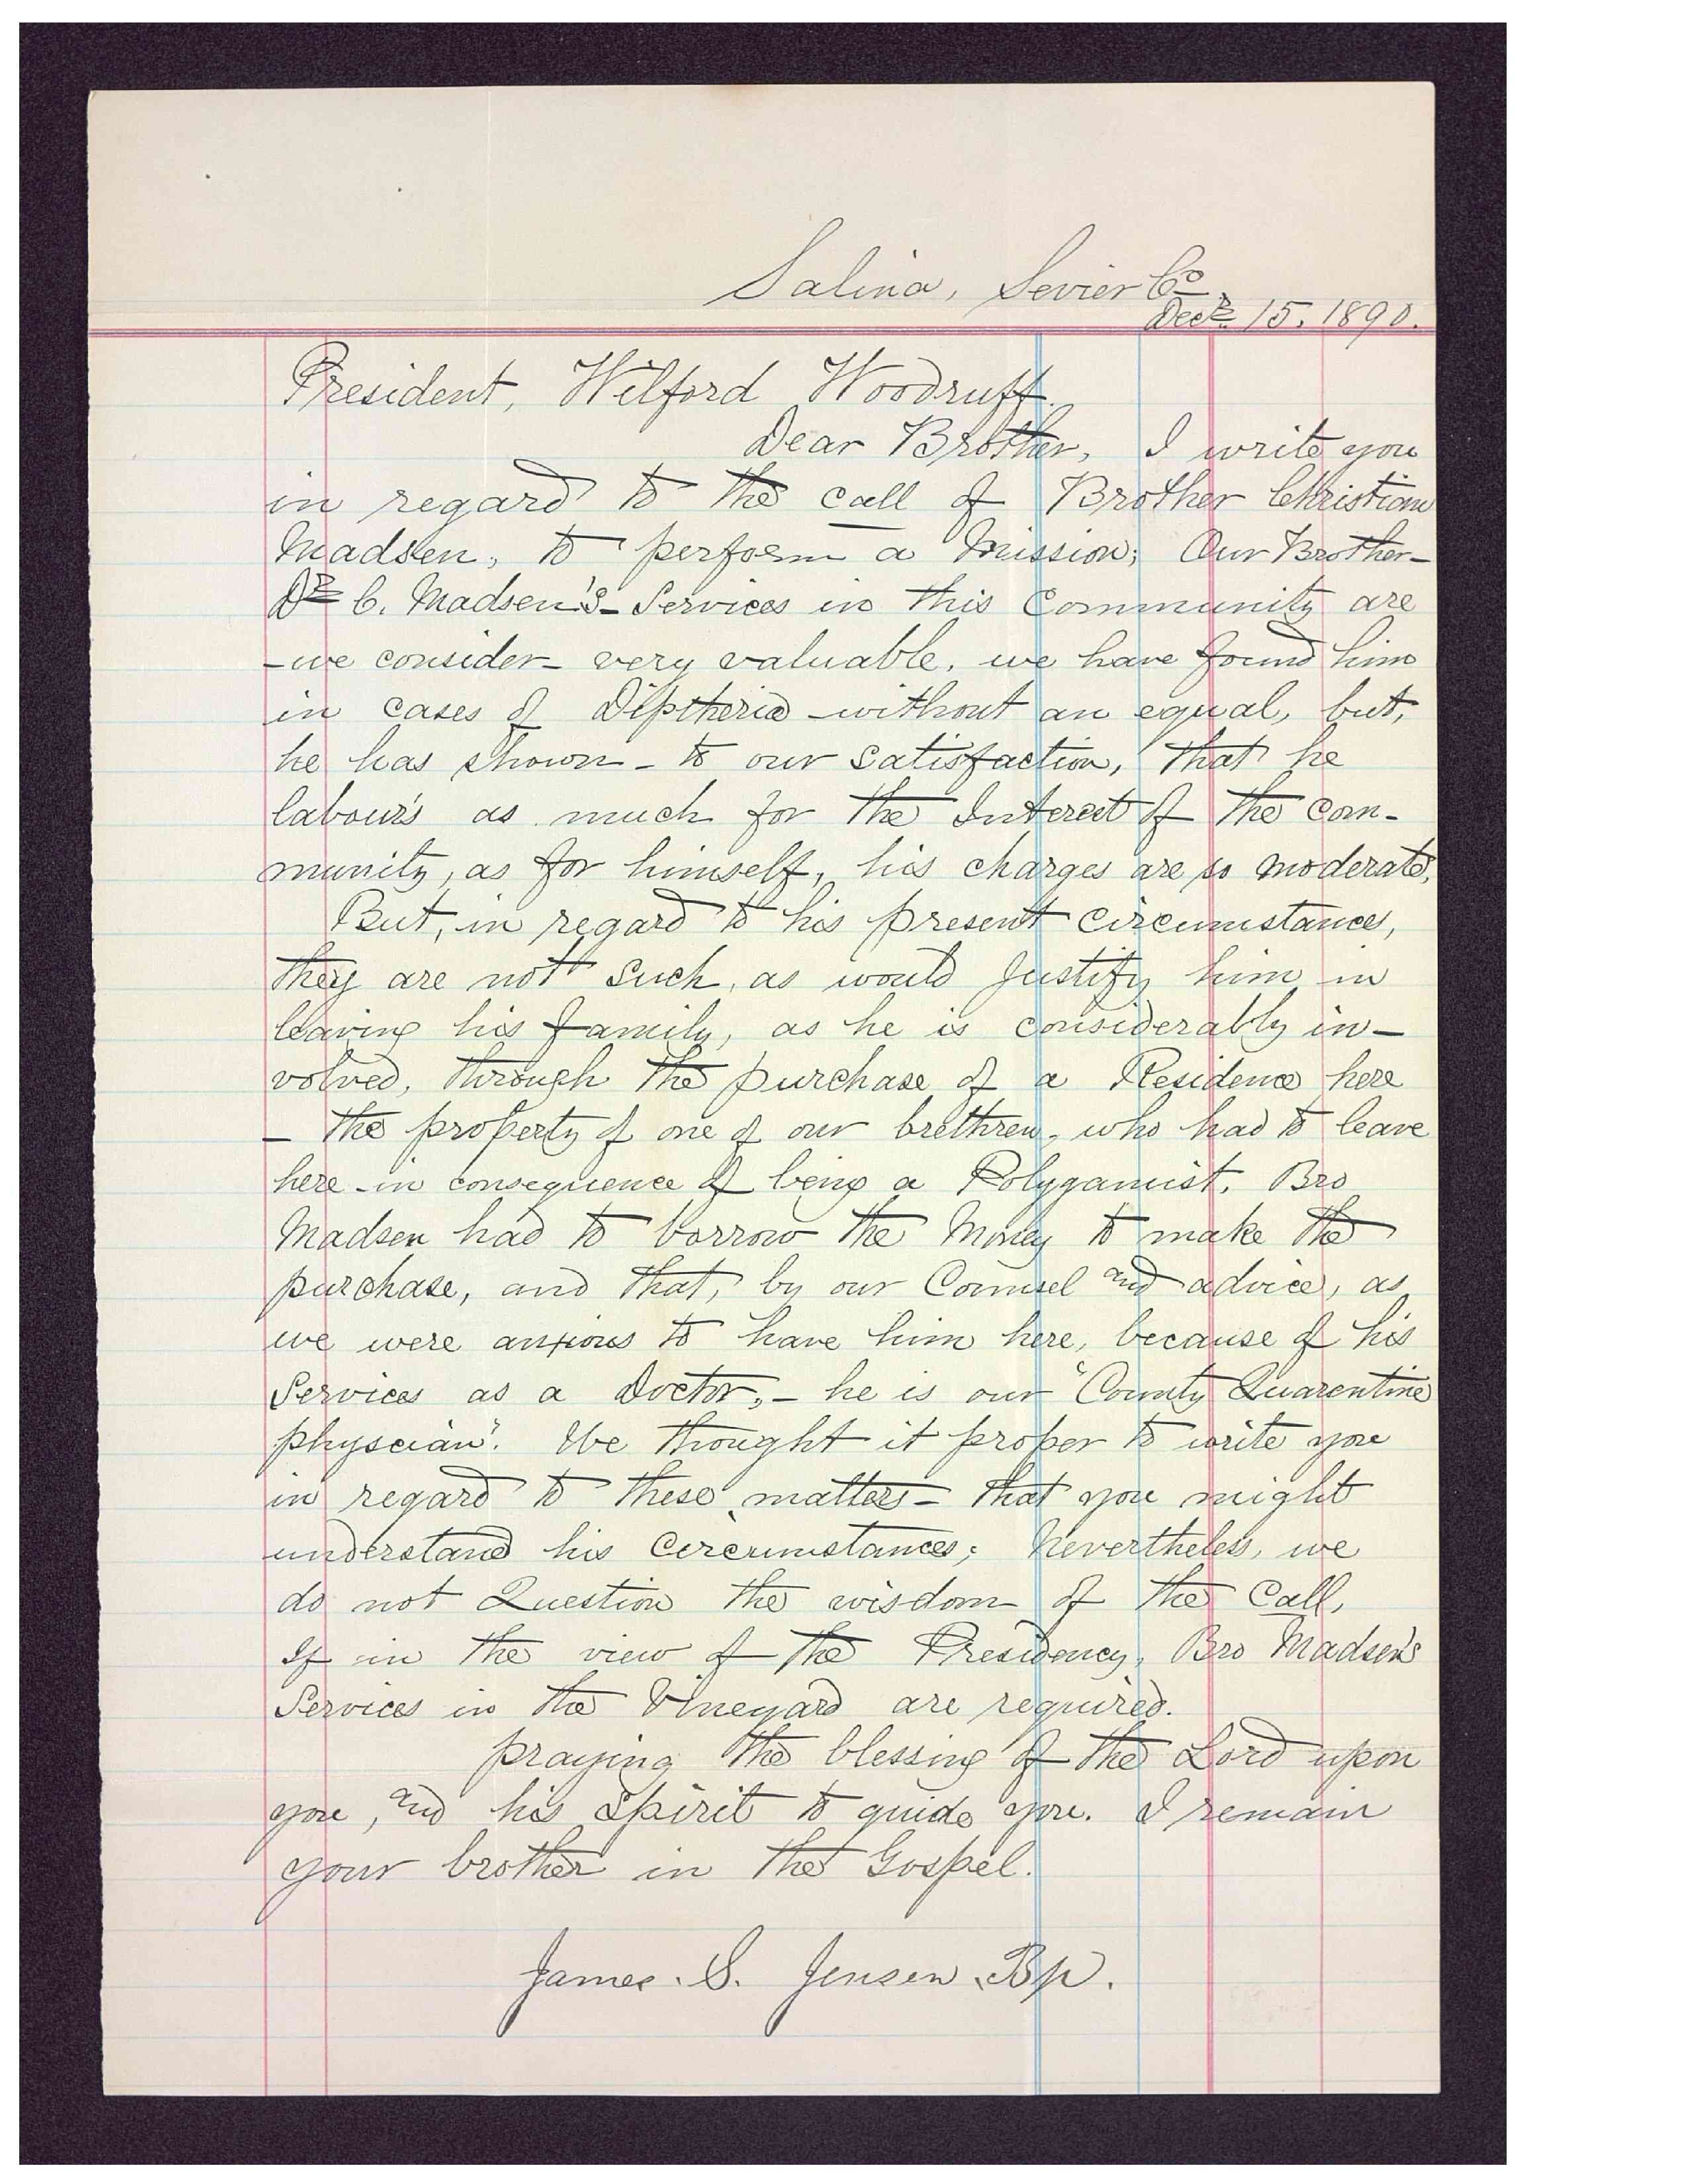 Salina, Sevier Co
Decr 15, 1890.
President, Wilford Woodruff.
Dear Brother, I write you
in regard to the call of Brother Christian
Madsen, to perform a Mission; Our Brother-
Dr C. Madsen's- Services in this Community are
-we consider- very valuable, we have found him
in cases of Diptheria without an equal, but,
he has shown - to our satisfaction, that he
labour's as much for the Interest of the com-
munity, as for himself, his charges are so moderate,
But, in regard to his present circumstances,
they are not such, as would Justify him in
leaving his family, as he is considerably in-
volved, through the purchase of a Residence here
- the property of one of our brethren, who had to leave
here in consequence of being a Polygamist. Bro
Madsen had to borrow the Money to make the
purchase, and that, by our Counsel and advice, as
we were anxious to have him here, because of his
Services as a Doctor,- he is our "County Quarentine
physcian". We thought it proper to write you
in regard to these matters - that you might
understand his Circumstances; Nevertheless, we
do not Question the wisdom of the Call,
If in the view of the Presidency, Bro Madsen's
Services in the Vineyard are required.
praying the blessing of the Lord upon
you, and his Spirit to guide you. I remain
your brother in the Gospel.
James. S. Jensen, Bp.